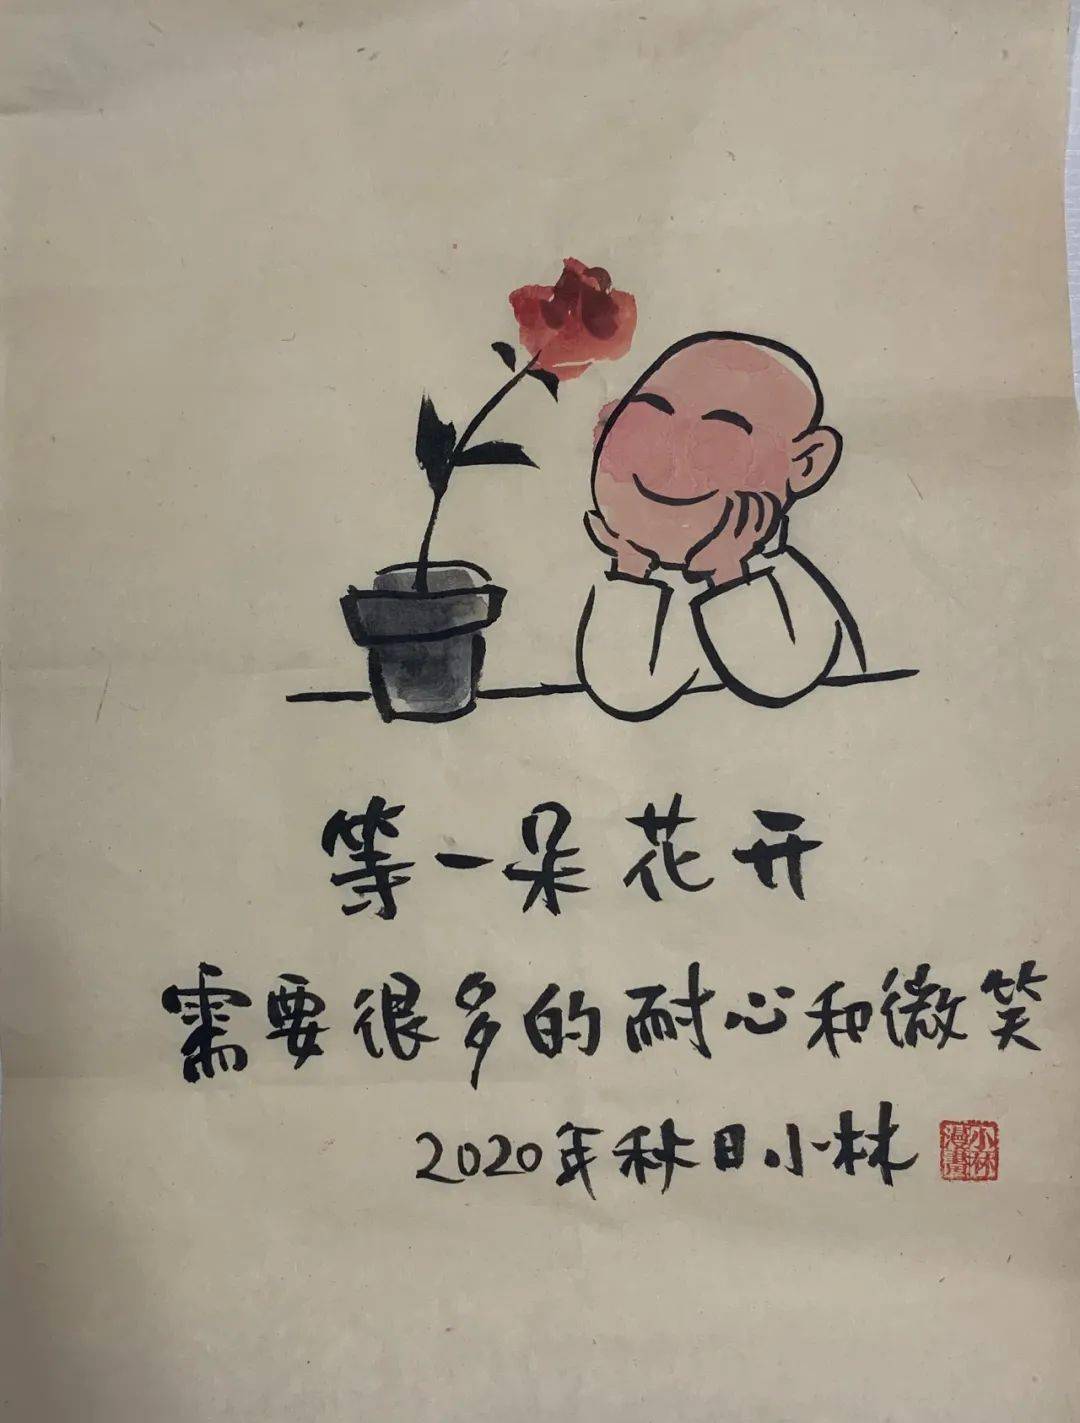 等一朵花开
需要很多的耐心和微笑
2020年秋日小林
小林漫畫